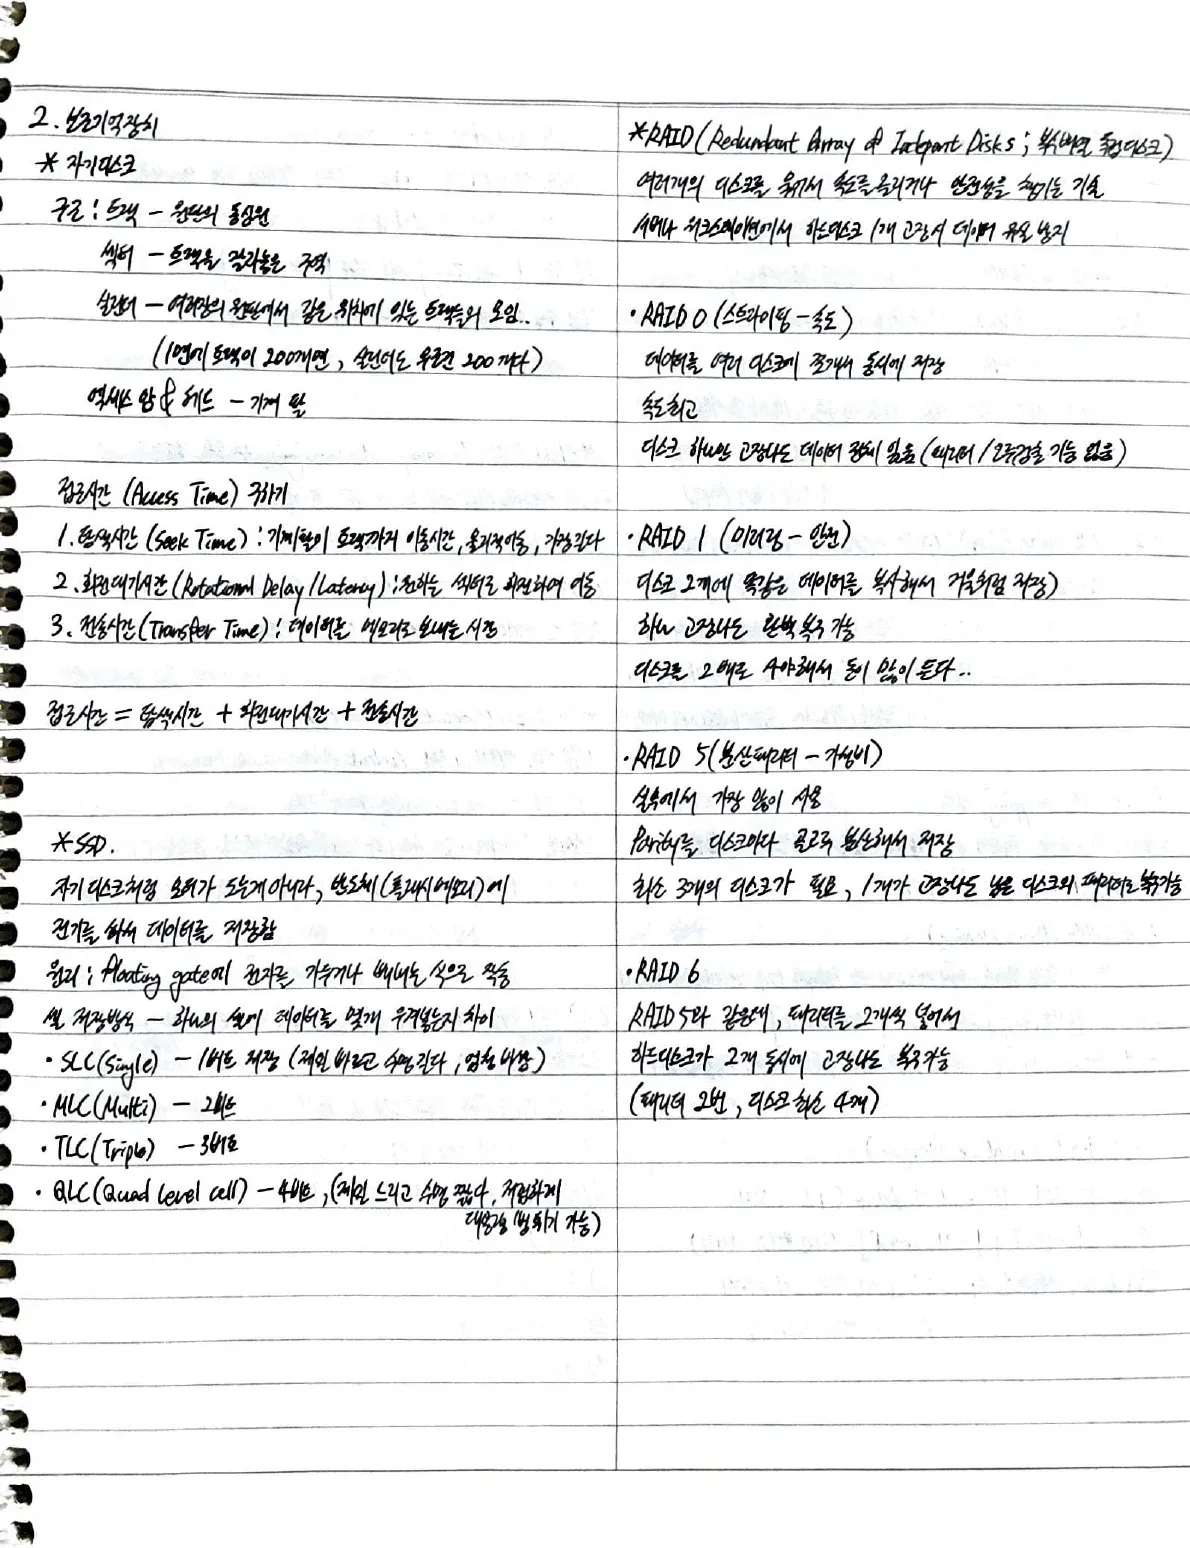 2. 보조기억장치
* 자기디스크
구조 : 트랙 - 원판의 동심원
섹터 - 트랙을 잘라놓은 구역
실린더 - 여러장의 원판에서 같은 위치에 있는 트랙들의 모임..
(1면에 트랙이 200개면, 실린더도 무조건 200개다)
엑세스 암 & 헤드 - 기계 팔
접근시간 (Access Time) 구하기
1. 탐색시간 (Seek Time) : 기계팔이 트랙까지 이동시간, 물리적이동, 가장길다
2. 회전대기시간 (Rotational Delay / Latency) : 원하는 섹터로 회전하여 이동
3. 전송시간 (Transfer Time) : 데이터를 메모리로 보내는 시간
접근시간 = 탐색시간 + 회전대기시간 + 전송시간
* SSD.
자기디스크처럼 모터가 도는게 아니라, 반도체(플래시메모리)에
전기를 써서 데이터를 저장함
원리 : floating gate에 전자를 가두거나 빼내는 식으로 작동
셀 저장방식 - 하나의 셀에 데이터를 몇개 우겨넣는지 차이
• SLC(Single) - 1비트 저장 (제일 빠르고 수명길다, 엄청 비쌈)
• MLC(Multi) - 2비트
• TLC(Triple) - 3비트
• QLC(Quad Level cell) - 4비트, (제일 느리고 수명 짧다, 저렴하게
대용량 뻥튀기 가능)
* RAID (Redundant Array of Indepant Disks ; 복수배열 독립디스크)
여러개의 디스크를 묶어서 속도를올리거나 안전성을 챙기는 기술
서버나 워크스테이션에서 하드디스크 1개 고장시 데이터 유실 방지
• RAID 0 (스트라이핑 - 속도)
데이터를 여러 디스크에 쪼개서 동시에 저장
속도최고
디스크 하나만 고장나도 데이터 전체 잃음 (패리티 / 오류검출 기능 없음)
• RAID 1 (미러링 - 안전)
디스크 2개에 똑같은 데이터를 복사해서 거울처럼 저장)
하나 고장나도 완벽 복구 가능
디스크를 2배로 사야해서 돈이 많이 든다..
• RAID 5 (분산패리티 - 가성비)
실무에서 가장 많이 사용
Parity를 디스크마다 골고루 분산해서 저장
최소 3개의 디스크가 필요, 1개가 고장나도 남은 디스크의 패리티로 복구가능
• RAID 6
RAID 5와 같은데, 패리티를 2개씩 넣어서
하드디스크가 2개 동시에 고장나도 복구가능
(패리티 2번, 디스크 최소 4개)